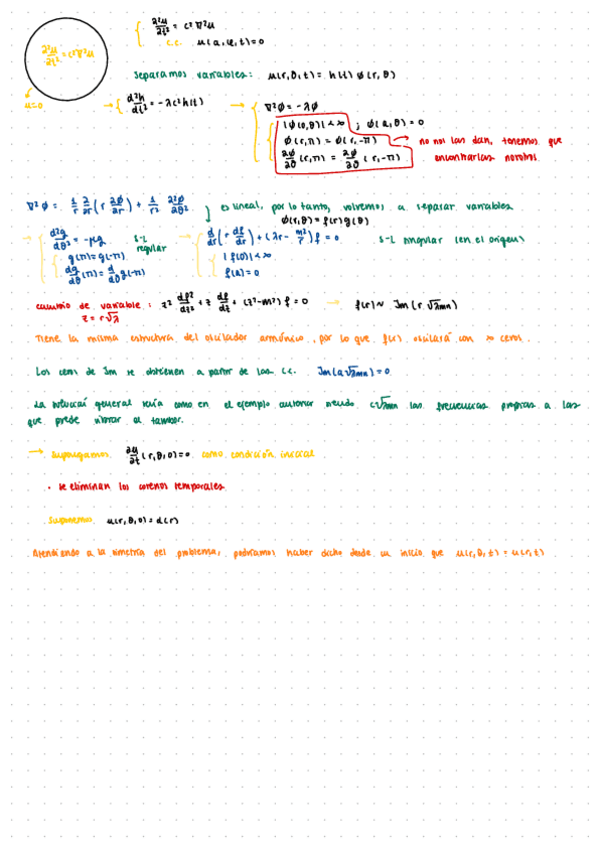 ∂²u/∂t² = c²∇²u
∂²u/∂t² = c²∇²u
u=0
c.c. u(a,θ,t)=0
separamos variables: u(r,θ,t) = h(t) φ(r,θ)
→ { d²h/dt² = -λc²h(t) → { ∇²φ = -λφ
|φ(0,θ)| < ∞ ; φ(a,θ) = 0
φ(r,π) = φ(r,-π) → no nos las dan, tenemos que
∂φ/∂θ (r,π) = ∂φ/∂θ (r,-π) encontrarlas nosotros.
∇²φ = 1/r ∂/∂r (r ∂φ/∂r) + 1/r² ∂²φ/∂θ² es lineal, por lo tanto, volvemos a separar variables
φ(r,θ) = f(r)g(θ)
→ { d²g/dθ² = -μg S-L regular → { d/dr (r df/dr) + (λr - m²/r) f = 0 S-L singular (en el origen)
g(π)=g(-π) |f(0)| < ∞
dg/dθ (π) = d/dθ g(-π) f(a) = 0
cambio de variable: z² df²/dz² + z df/dz + (z²-m²) f = 0 → f(r) ~ Jm (r √λmn)
z = r√λ
Tiene la misma estructura del oscilador armónico, por lo que f(r) oscilará con ∞ ceros.
Los ceros de Jm se obtienen a partir de las c.c. Jm(a√λmn) = 0
La solución general sería como en el ejemplo anterior siendo c√λmn las frecuencias propias a las
que puede vibrar el tambor.
→ supongamos ∂u/∂t (r,θ,0)=0 como condición inicial
• se eliminan los cosenos temporales
Suponemos u(r,θ,0) = α(r)
Atendiendo a la simetría del problema, podríamos haber dicho desde un inicio que u(r,θ,t) = u(r,t)